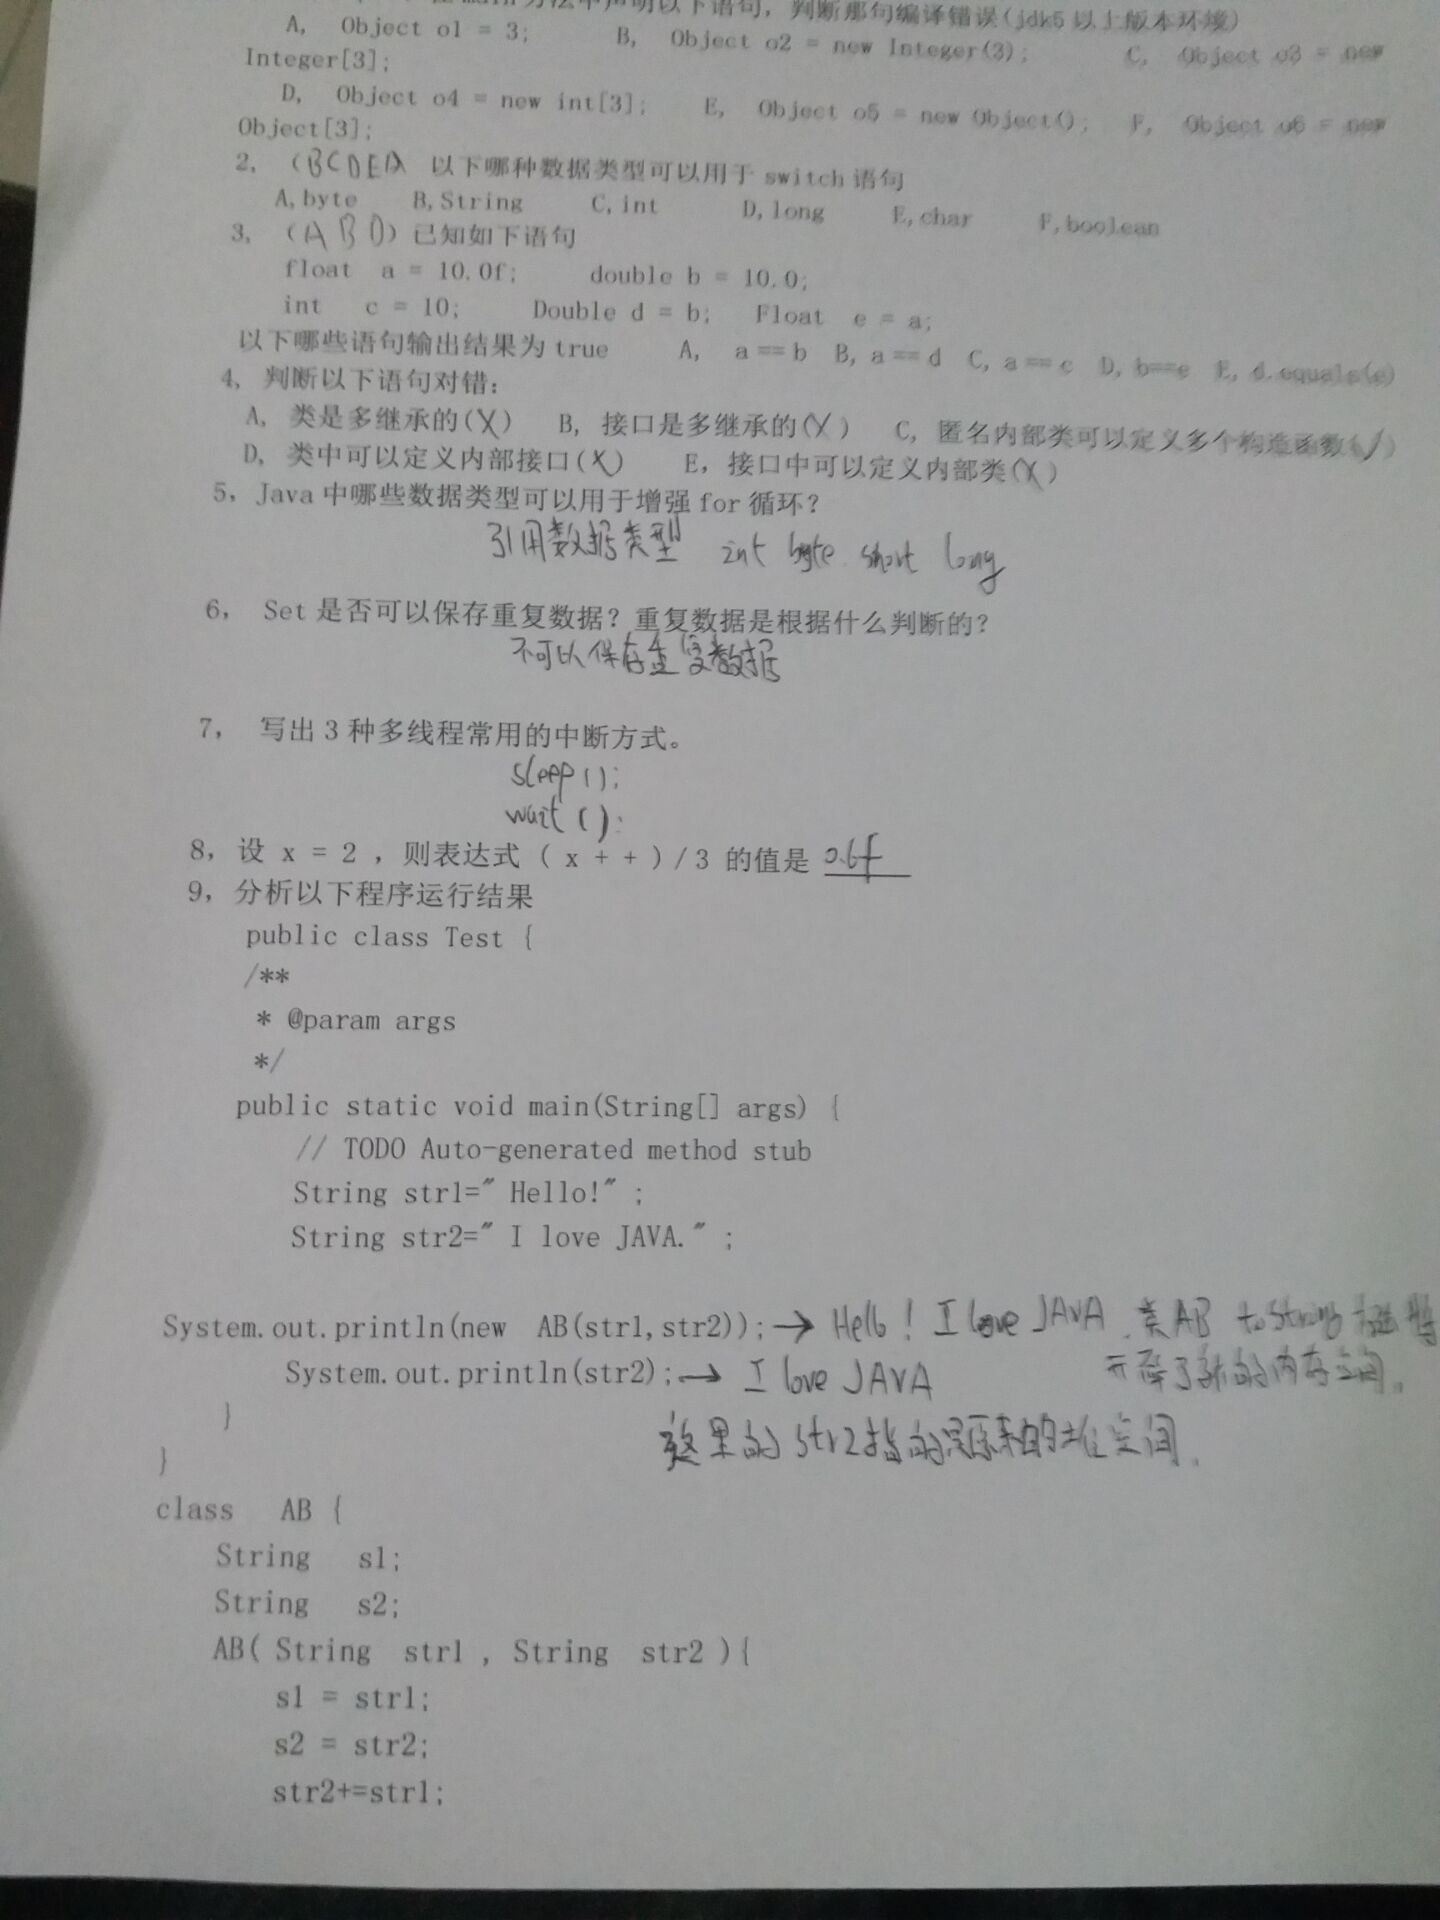 在 main 方法中声明以下语句，判断那句编译错误(jdk5 以上版本环境)
A, Object o1 = 3; B, Object o2 = new Integer(3); C, Object o3 = new
Integer[3];
D, Object o4 = new int[3]; E, Object o5 = new Object(); F, Object o6 = new
Object[3];
2, (BCDEA 以下哪种数据类型可以用于 switch 语句
A,byte B,String C,int D,long E,char F,boolean
3, (A B D) 已知如下语句
float a = 10.0f; double b = 10.0;
int c = 10; Double d = b; Float e = a;
以下哪些语句输出结果为 true A, a==b B, a==d C, a==c D, b==e E, d.equals(e)
4, 判断以下语句对错：
A, 类是多继承的(X) B, 接口是多继承的(X) C, 匿名内部类可以定义多个构造函数(√)
D, 类中可以定义内部接口(X) E, 接口中可以定义内部类(X)
5, Java 中哪些数据类型可以用于增强 for 循环？
引用数据类型 int byte short long
6, Set 是否可以保存重复数据？重复数据是根据什么判断的？
不可以保存重复数据
7, 写出 3 种多线程常用的中断方式。
sleep();
wait();
8, 设 x = 2 , 则表达式 ( x + + )/3 的值是 0.6f
9, 分析以下程序运行结果
public class Test {
/**
* @param args
*/
public static void main(String[] args) {
// TODO Auto-generated method stub
String str1=″ Hello!″ ;
String str2=″ I love JAVA.″ ;
System.out.println(new AB(str1,str2)); → Hello! I love JAVA. 类AB toString 方法
System.out.println(str2); → I love JAVA 开辟了新的内存空间.
} 这里的 str2指的是原来的堆空间.
}
class AB {
String s1;
String s2;
AB( String str1 , String str2 ){
s1 = str1;
s2 = str2;
str2+=str1;